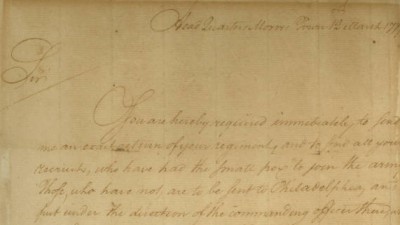 Head Quarters Morris Town 12 March 1777
Sir,
You are hereby required immediately to send
me an exact return of your regiment, and to send all your
recruits, who have had the small pox to join the army
Those, who have not, are to be sent to Philadelphia, and
put under the direction of the commanding officer there,